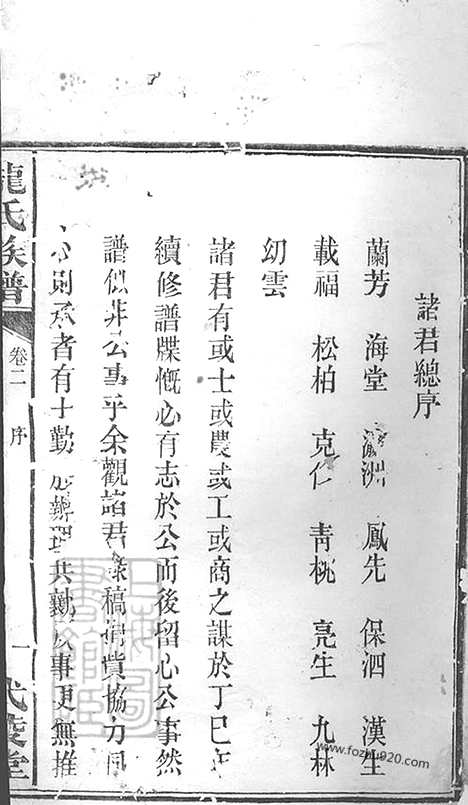 諸君總序
蘭芳 海堂 瀛洲 鳳先 保泗 漢生
載福 松柏 克仁 青桃 亮生 九林
幻雲
諸君有或士或農或工或商之謀於丁巳年
續修譜牒慨必有志於公而後留心公事然
譜似非公事乎余觀諸君 稿捐貲協力同
心則承者有十勤 共勷 事更無推
龍氏族譜
卷二 序
一
武陵堂
www.fozhu920.com